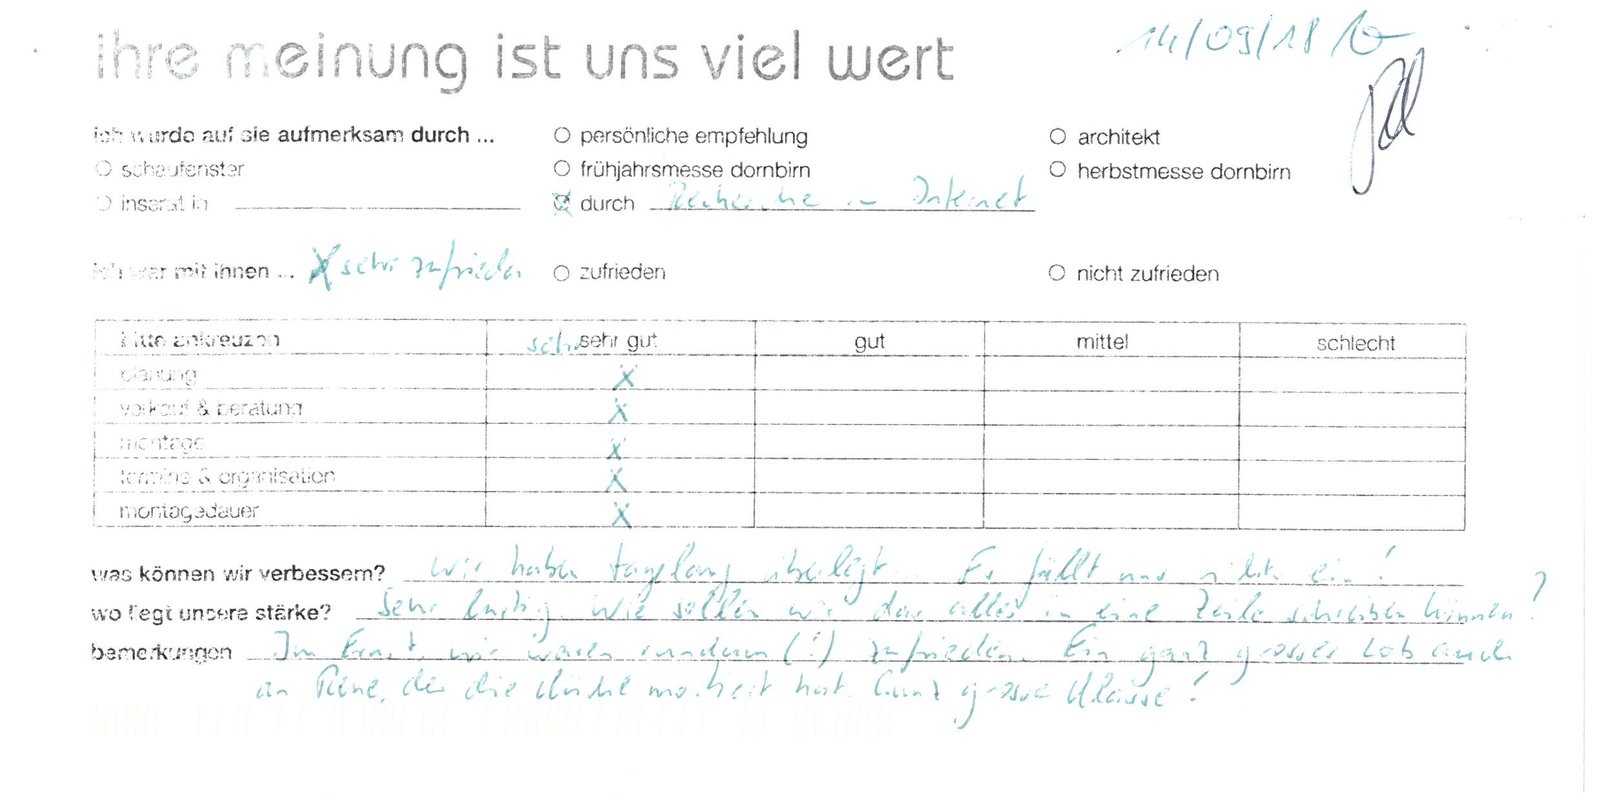 14/09/18
ihre meinung ist uns viel wert
ich wurde auf sie aufmerksam durch ... ○ persönliche empfehlung ○ architekt
○ schaufenster ○ frühjahrsmesse dornbirn ○ herbstmesse dornbirn
○ inserat in durch Recherche im Internet
ich war mit ihnen ... X sehr zufrieden ○ zufrieden ○ nicht zufrieden
bitte ankreuzen sehr sehr gut gut mittel schlecht
planung X
verkauf & beratung X
montage X
termine & organisation X
montagedauer X
was können wir verbessern? Wir haben tagelang überlegt. Es fällt uns nichts ein!
wo liegt unsere stärke? Sehr lustig. Wie sollen wir das alles in eine Zeile schreiben können?
bemerkungen Im Ernst, wir waren rundum (!) zufrieden. Ein ganz grosses Lob auch
an Rene, der die Küche montiert hat. Ganz grosse Klasse!